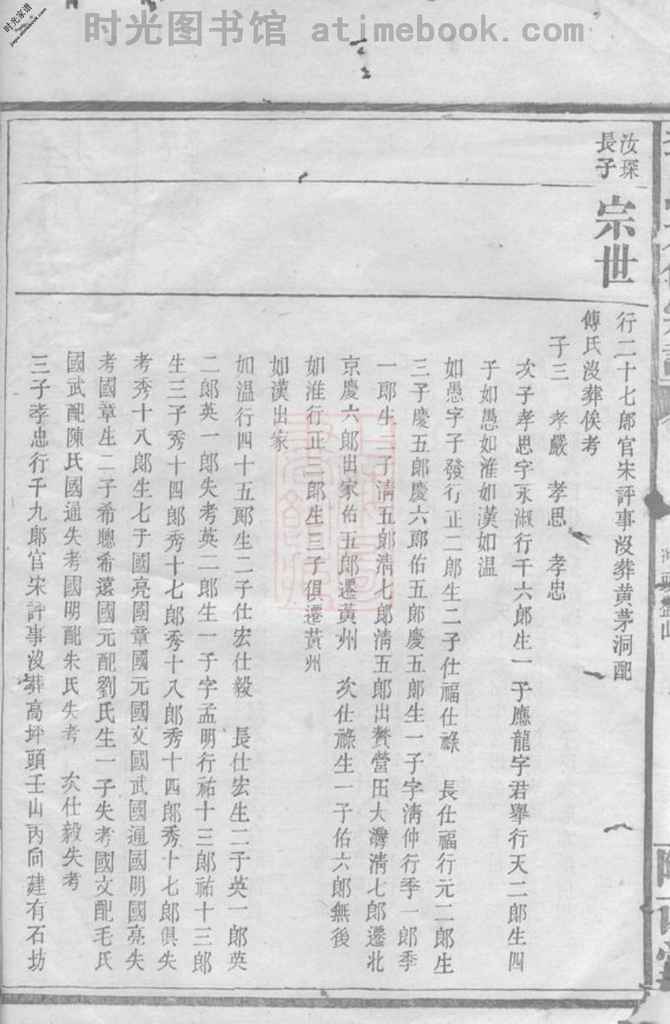 时光图书馆 atimebook.com
时光家谱
汝琛
長子
宗世
行二十七郎官宋評事沒葬黄茅洞配
傅氏沒葬俟考
子三 孝嚴 孝思 孝忠
次子孝思字永淑行千六郎生一子應龍字君舉行天二郎生四
子如愚如淮如漢如温
如愚字子發行正二郎生二子仕福仕祿 長仕福行元二郎生
三子慶五郎慶六郎佑五郎慶五郎生一子字淸仲行季一郎季
一郎生二子淸五郎淸七郎淸五郎出贅營田大灣淸七郎遷北
京慶六郎出家佑五郎遷黄州 次仕祿生一子佑六郎無後
如淮行正三郎生三子俱遷黄州
如漢出家
如温行四十五郎生二子仕宏仕毅 長仕宏生二子英一郎英
二郎英一郎失考英二郎生一子字孟明行祐十三郎祐十三郎
生三子秀十四郎秀十七郎秀十八郎秀十四郎秀十七郎俱失
考秀十八郎生七子國亮國章國元國文國武國通國明國亮失
考國章生二子希聰希遠國元配劉氏生一子失考國文配毛氏
國武配陳氏國通失考國明配朱氏失考 次仕毅失考
三子孝忠行千九郎官宋評事沒葬高坪頭壬山丙向建有石坊